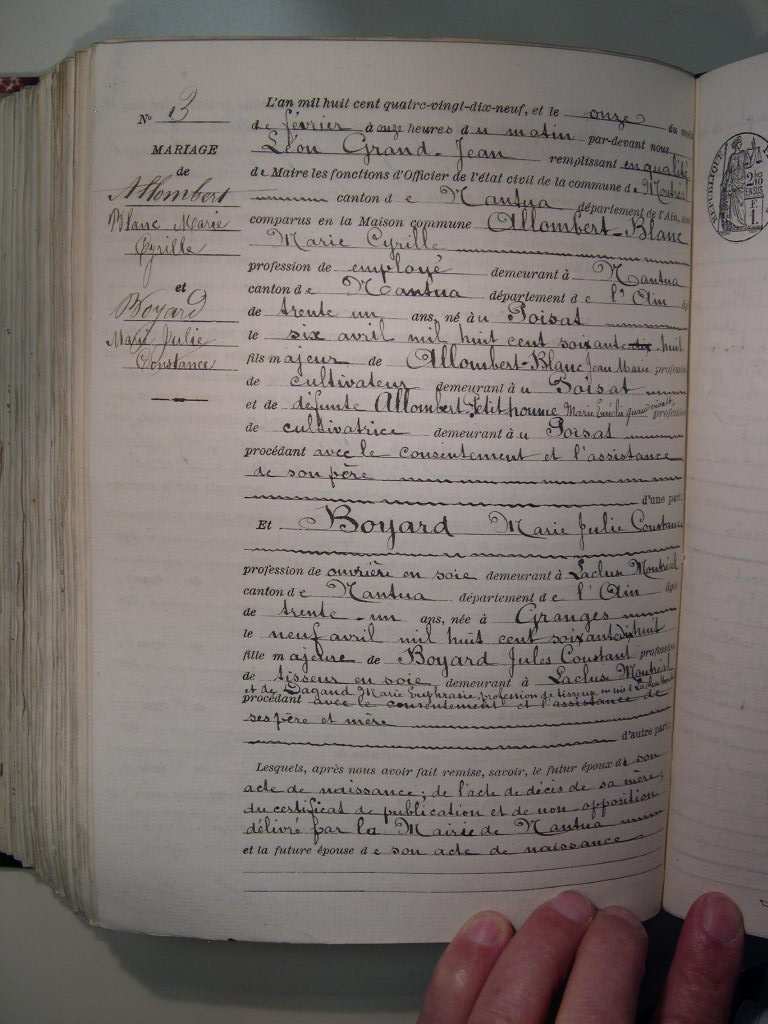 N° 3
MARIAGE
de
Allombert
Blanc Marie
Cyrille
et
Boyard
Marie Julie
Constance
L'an mil huit cent quatre-vingt-dix-neuf, et le onze du mois
de février à onze heures du matin par-devant nous
Léon Grand-Jean remplissant en qualité
de Maire les fonctions d'Officier de l'état civil de la commune de Montréal
canton de Nantua département de l'Ain,
comparus en la Maison commune Allombert-Blanc
Marie Cyrille
profession de employé demeurant à Nantua
canton de Nantua département de l'Ain
de trente un ans, né à u Poisat
le six avril mil huit cent soixante dix huit
fils majeur de Allombert-Blanc Jean Marie profession
de cultivateur demeurant à u Poisat
et de défunte Allombert Petithomme Marie quand vivait profession
de cultivatrice demeurant à u Poisat
procédant avec le consentement et l'assistance
de son père
d'une part
Et Boyard Marie Julie Constance
profession de ouvrière en soie demeurant à Lacluse Montréal
canton de Nantua département de l'Ain
de trente-un ans, née à Granges
le neuf avril mil huit cent soixante huit
fille majeure de Boyard Jules Constant profession
de tisseur en soie demeurant à Lacluse Montréal
et de Dagand Marie Euphrasie profession de tisseur en soie à Lacluse
procédant avec le consentement et l'assistance de
ses père et mère
d'autre part
Lesquels, après nous avoir fait remise, savoir, le futur époux de son
acte de naissance; de l'acte de décès de sa mère;
du certificat de publication et de non-opposition
délivré par la Mairie de Nantua
et la future épouse de son acte de naissance